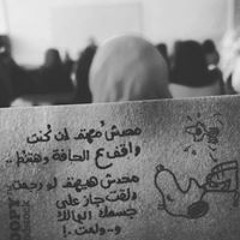 محدش مُهتم إن كُنت
واقف ع الحافة وهتنط ..
محدش هيهتم لو رجعت
دلقت جاز على
جسمك الهالك
و .. ولعت .!